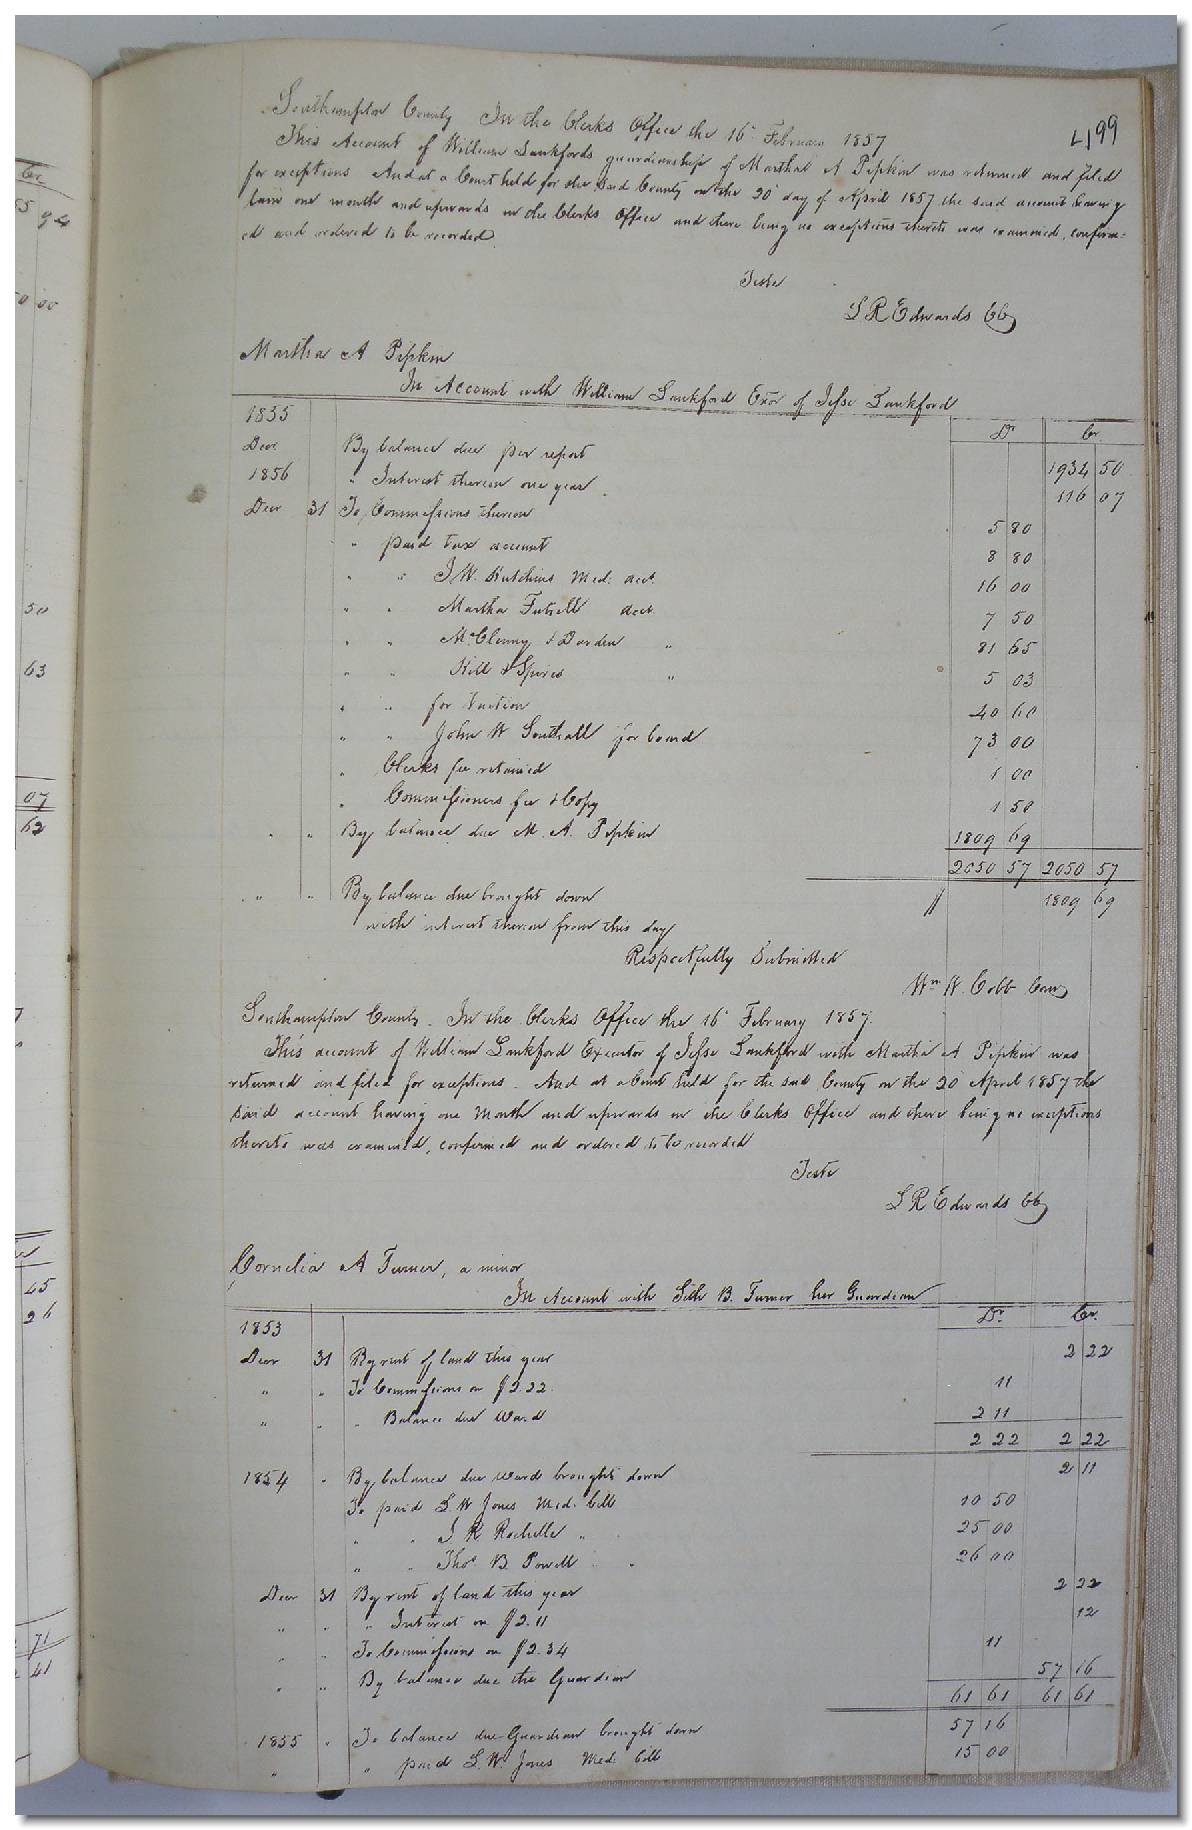 499
Southampton County In the Clerks Office the 16 February 1857
This Account of William Lankfords guardianship of Martha A Pipkin was returned and filed
for exceptions And at a Court held for the said County on the 20 day of April 1857 the said account having
lain one month and upwards in the Clerks Office and there being no exceptions thereto was examined, confirm=
ed and ordered to be recorded
Teste
L R Edwards CC
Martha A Pipkin
In Account with William Lankford Exor of Jesse Lankford
1835 Dr Cr
Decr By balance due per report 1934 50
1856 " Interest thereon one year 116 07
Decr 31 To Commissions thereon 5 80
" paid tax account 8 80
" " J W. Hutchins Med: acct. 16 00
" " Martha Futrell acct. 7 50
" " McClenny & Darden " 81 65
" " Hill & Spires " 5 03
" " for tuition 40 60
" " John W Southall for board 73 00
" Clerks fee retained 1 00
" Commissioners fee & Copy 1 50
" " By balance due M. A. Pipkin 1809 69
2050 57 2050 57
" " By balance due brought down 1809 69
with interest thereon from this day
Respectfully Submitted
Wm W. Cobb Comr
Southampton County. In the Clerks Office the 16 February 1857.
This account of William Lankford Executor of Jesse Lankford with Martha A Pipkin was
returned and filed for exceptions. And at a Court held for the said County on the 20 April 1857 the
said account having one month and upwards in the Clerks Office and there being no exceptions
thereto was examined, confirmed and ordered to be recorded
Teste
L R Edwards CC
Cornelia A Turner, a minor
In Account with Seth B. Turner her Guardian
1853 Dr. Cr.
Decr 31 By rent of land this year 2 22
" " To Commissions on $2.22 11
" " " Balance due Ward 2 11
2 22 2 22
1854 " By balance due ward brought down 2 11
To paid L. W Jones Med: bill 10 50
" " J R Rochelle " 25 00
" " Thos B. Powell " 26 00
Decr 31 By rent of land this year 2 22
" " " Interest on $2.11 12
" " To Commissions on $2.34 11
" " By balance due the Guardian 57 16
61 61 61 61
1855 " To balance due Guardian brought down 57 16
" " paid L. W. Jones Med: bill 15 00